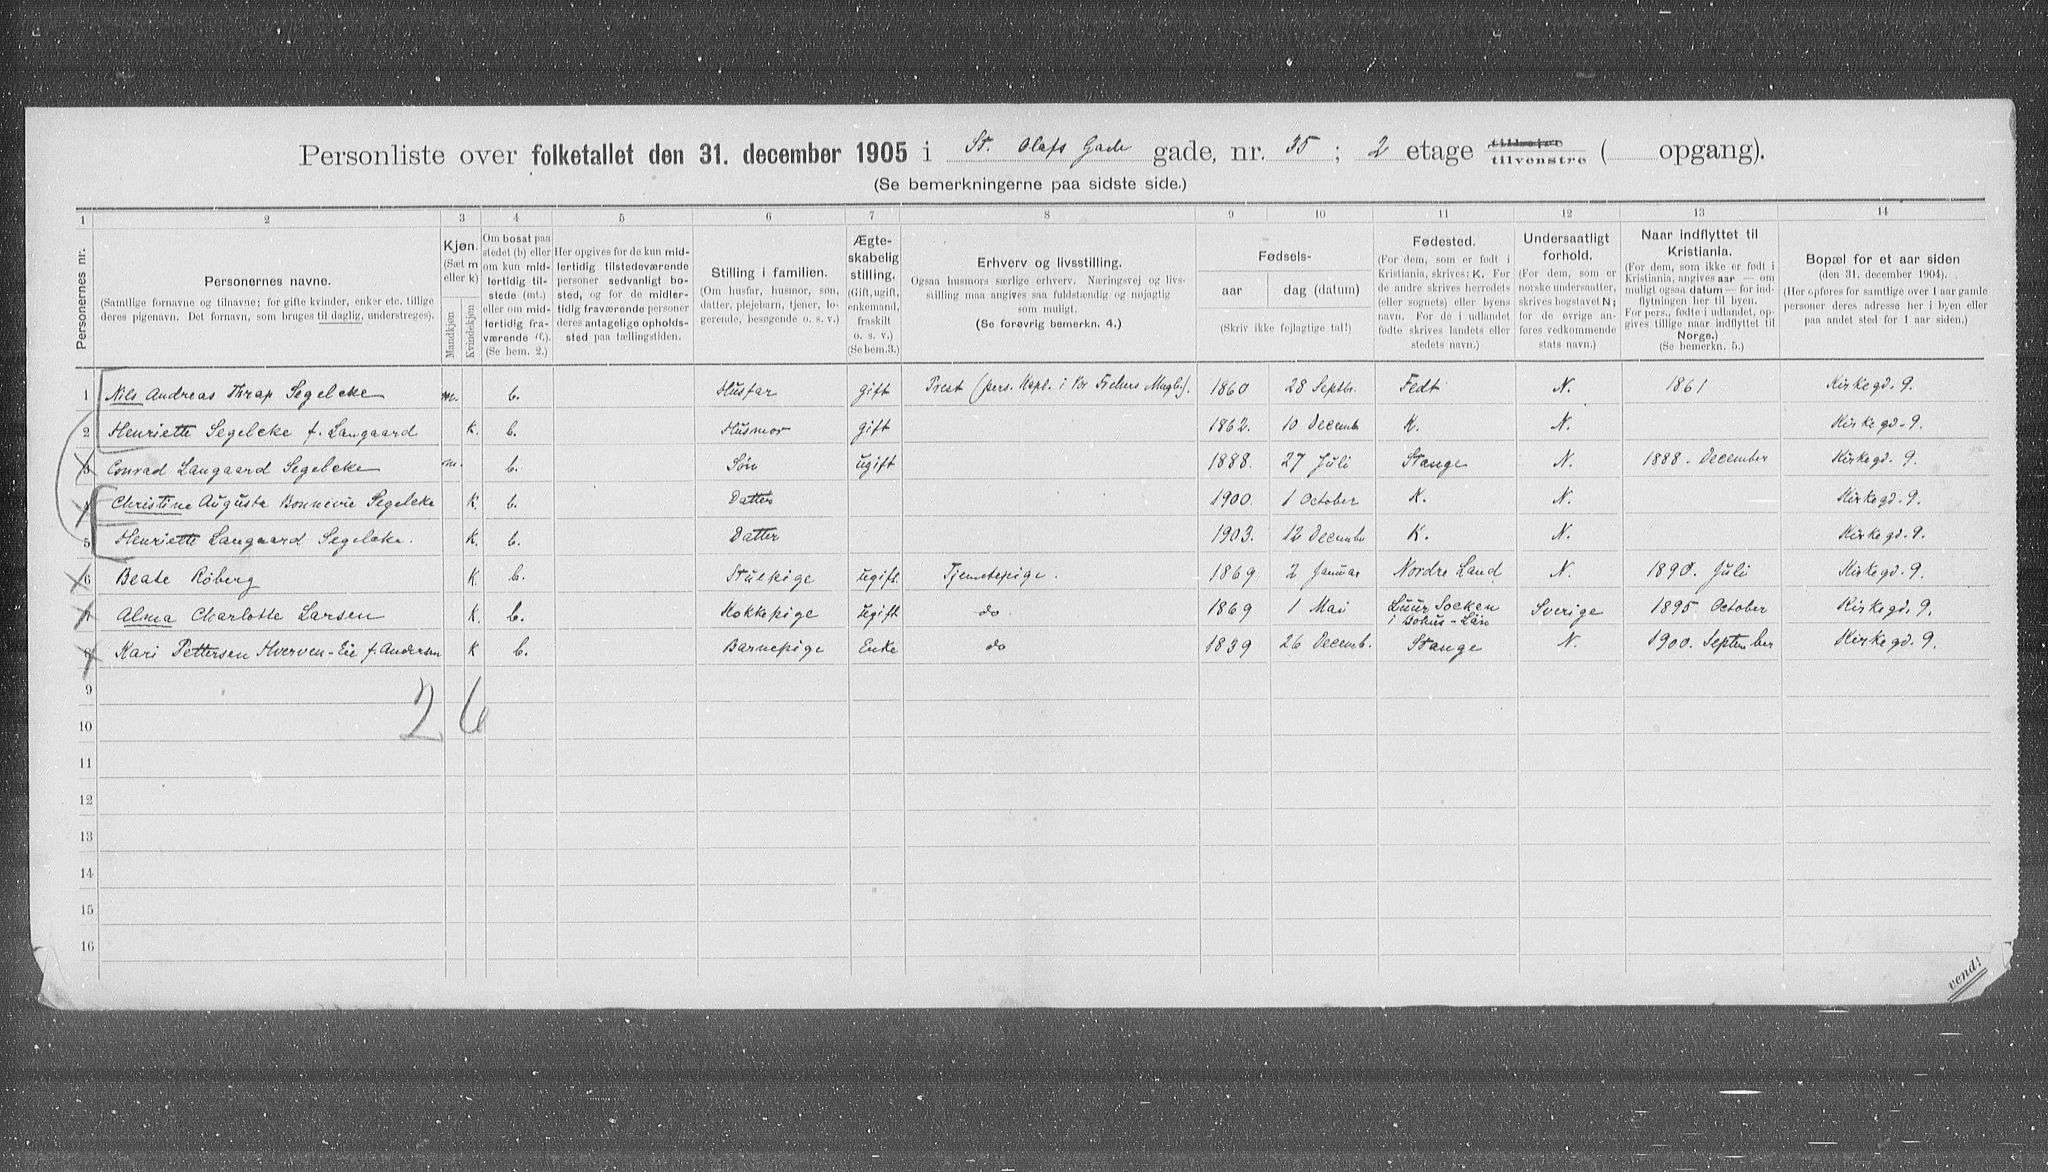 Personliste over folketallet den 31. december 1905 i St. Olafs Gade gade, nr. 35; 2 etage tilhøire tilvenstre ( opgang).
(Se bemerkningerne paa sidste side.)
1 2 3 4 5 6 7 8 9 10 11 12 13 14
Personernes nr.
Personernes navne.
(Samtlige fornavne og tilnavne; for gifte kvinder, enker etc. tillige
deres pigenavn. Det fornavn, som bruges til daglig, understreges).
Kjøn.
(Sæt m
eller k)
Mandkjøn
Kvindekjøn
Om bosat paa
stedet (b) eller
om kun mid-
lertidig til-
stede (mt.)
eller om mid-
lertidig fra-
værende (f.).
(Se bem. 2.)
Her opgives for de kun mid-
lertidig tilstedeværende
personer sedvanligt bo-
sted, og for de midler-
tidig fraværende personer
deres antagelige opholds-
sted paa tællingstiden.
Stilling i familien.
(Om husfar, husmor, søn,
datter, plejebarn, tjener, lo-
gerende, besøgende o. s. v.)
Ægte-
skabelig
stilling.
(Gift, ugift,
enkemand,
fraskilt
o. s. v.)
(Se bem.3.)
Erhverv og livsstilling.
Ogsaa husmors særlige erhverv. Næringsvej og livs-
stilling maa angives saa fuldstændig og nøjagtig
som muligt.
(Se forøvrig bemerkn. 4.)
Fødsels-
aar
dag (datum)
(Skriv ikke fejlagtige tal!)
Fødested.
(For dem, som er født i
Kristiania, skrives: K. For
de andre skrives herredets
(eller sognets) eller byens
navn. For de i udlandet
fødte skrives landets eller
stedets navn.)
Undersaatligt
forhold.
(For dem, som er
norske undersaatter,
skrives bogstavet N;
for de øvrige an-
føres vedkommende
stats navn.)
Naar indflyttet til
Kristiania.
(For dem, som ikke er født i
Kristiania, angives aar — om
muligt ogsaa datum — for ind-
flytningen her til byen.
For pers., fødte i udlandet, op-
gives tillige naar indflyttet til
Norge.)
(Se bemerkn. 5.)
Bopæl for et aar siden
(den 31. december 1904).
(Her opføres for samtlige over 1 aar gamle
personer deres adresse her i byen eller
paa andet sted for 1 aar siden.)
1 Nils Andreas Thrap Segelcke m. b. Husfar gift Prest (pers. Kapl. i Vor Frelsers Mngh.). 1860 28 Septbr. Fedt N. 1861 Kirkegd. 9.
2 Henriette Segelcke f. Langaard K. b. Husmor gift 1862. 10 Decemb K. N. Kirkegd. 9.
3 Conrad Langaard Segelcke m. b. Søn ugift 1888. 27 Juli Stange N. 1888. December Kirkegd. 9.
4 Christine Augusta Bonnevie Segelcke K. b. Datter 1900. 1 October K. N. Kirkegd. 9.
5 Henriette Langaard Segelcke. K. b. Datter 1903. 12 Decembr K. N. Kirkegd. 9.
6 Beate Røberg K. b. Stuepige ugift. Tjenestepige. 1869 2 Januar Nordre Land N. 1890. Juli Kirkegd. 9.
7 Alma Charlotte Larsen K. b. Kokkepige ugift do. 1869 1 Mai Luur Socken i Bohus-Län Sverige 1895. October Kirkegd. 9.
8 Kari Pettersen Hverven-Eie f. Andersen K b. Barnepige Enke do 1839 26 Decemb. Stange N. 1900. September Kirkegd. 9.
9
10
2 6
11
12
13
14
15
16
vend!